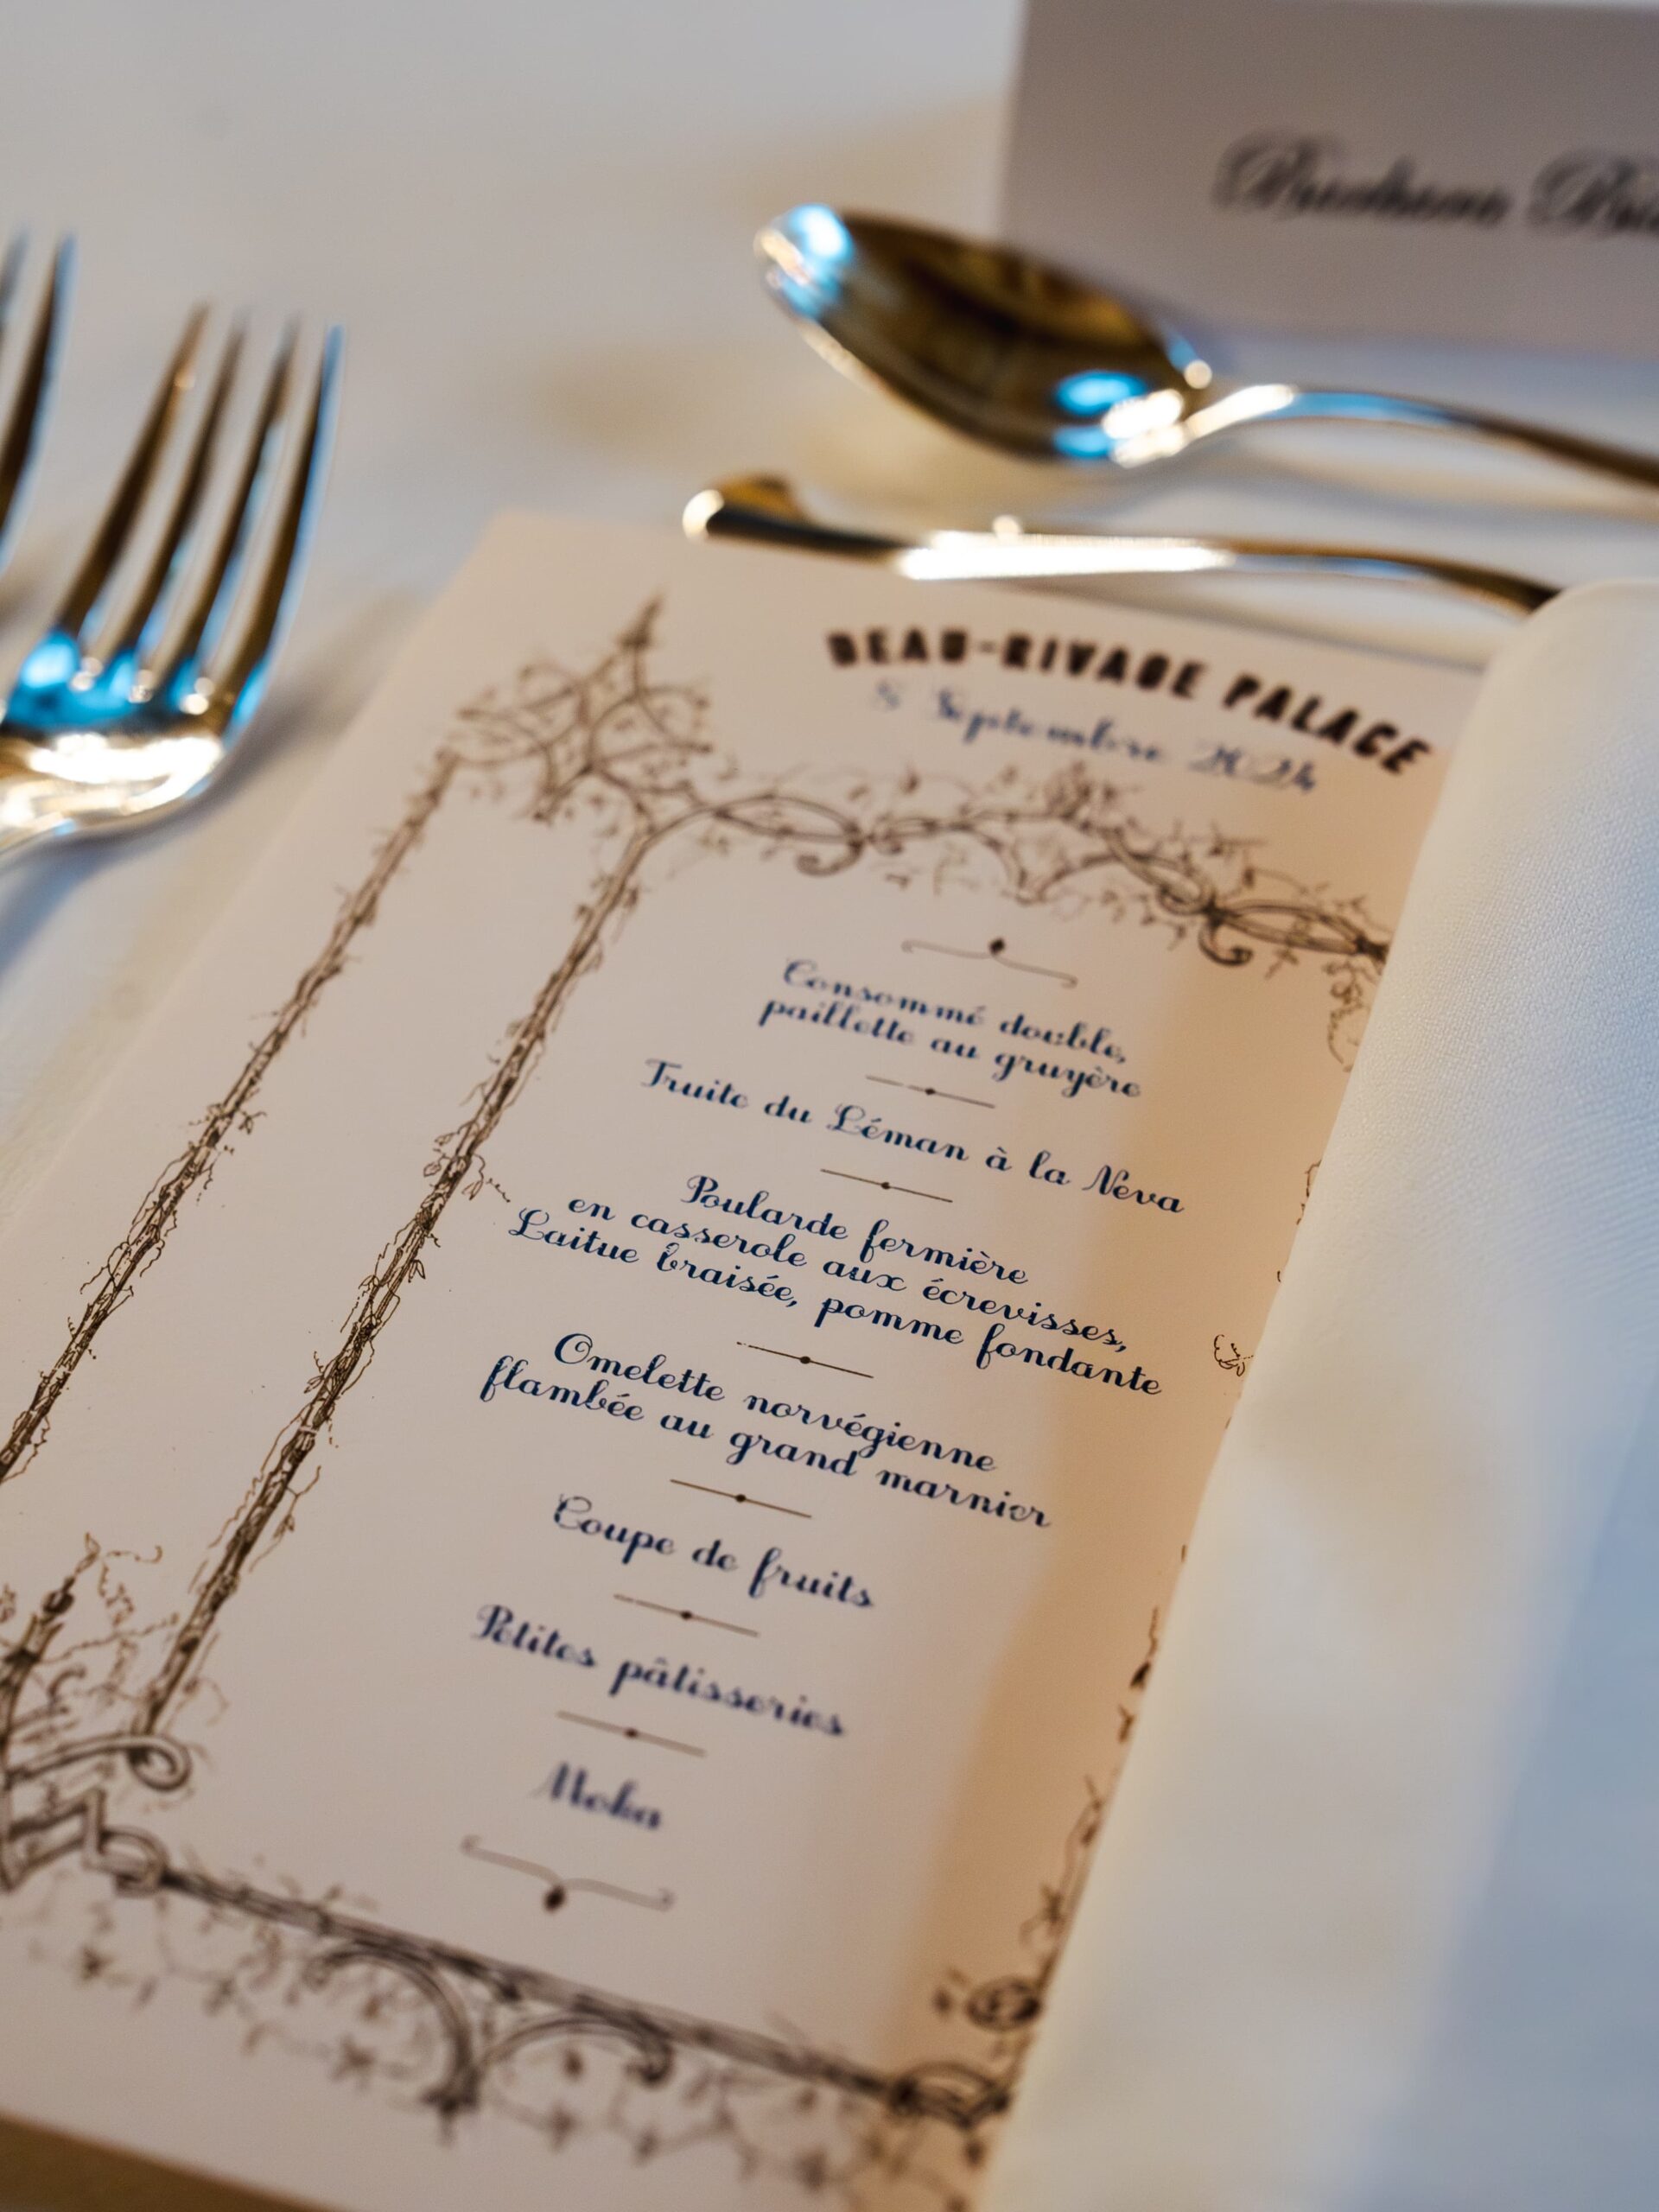 BEAU-RIVAGE PALACE
Septembre 2024
Consommé double,
paillette au gruyère
Truite du Léman à la Neva
Poularde fermière
en casserole aux écrevisses,
Laitue braisée, pomme fondante
Omelette norvégienne
flambée au grand marnier
Coupe de fruits
Petites pâtisseries
Moka